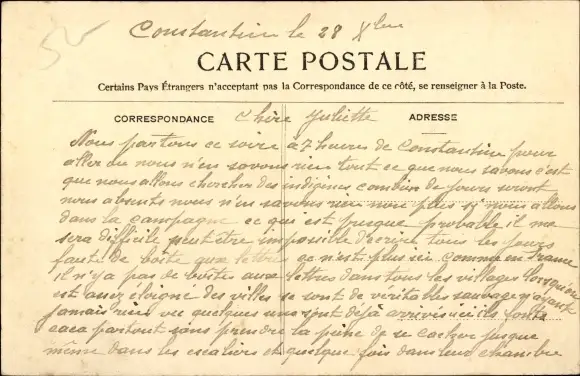 Constantine le 28 Xbre
CARTE POSTALE
Certains Pays Étrangers n'acceptent pas la Correspondance de ce côté, se renseigner à la Poste.
CORRESPONDANCE
ADRESSE
Chère Juliette
Nous partons ce soire à 7 heures de Constantine pour
aller ou nous n'en savons rien tout ce que nous savons c'est
que nous allons chercher des indigines combien de jours seront
nous absents nous n'en savons rien non plus si nous allons
dans la campagne ce qui est presque probable il me
sera difficile peut être impossible d'ecrire tous les jours
faute de boite aux lettres ce n'est plus ici comme en France
il n'y a pas de boites aux lettres dans tous les villages lorsqu'on
est assez éloigné des villes ce sont de véritables sauvages n'ayant
jamais rien vu quelques uns sont déjà arrivés ici ils font
caca partout sans prendre la peine de se cacher presque
même dans les escaliers et quelque fois dans leur chambre